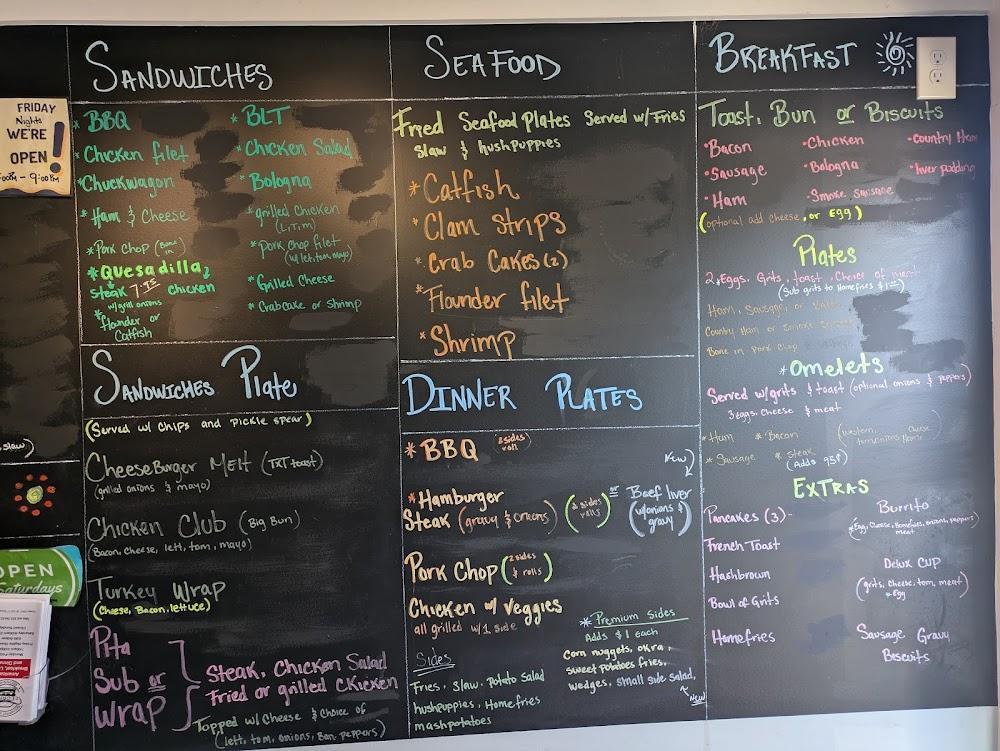 FRIDAY
Nights
WE'RE
OPEN!
SANDWICHES
* BBQ
* Chicken filet
* Chuckwagon
* Ham & Cheese
* Pork Chop (Bone in)
* Quesadilla
steak 7.95 chicken
w/grill onions
* flounder or
Catfish
* BLT
* Chicken Salad
* Bologna
* grilled Chicken
(L,T,m)
* Pork Chop filet
(w/ let, tom, mayo)
* Grilled Cheese
* Crabcake or Shrimp
SANDWICHES Plate
(Served w/ chips and pickle spear)
CheeseBurger MELT (TXT toast)
(grilled onions & mayo)
Chicken Club (Big Bun)
(Bacon, cheese, lett, tom, mayo)
Turkey Wrap
(Cheese, Bacon, lettuce)
Pita
Sub or
Wrap
Steak, Chicken Salad
Fried or grilled Chicken
Topped w/ Cheese & Choice of
(lett, tom, onions, Ban. peppers)
SEAFOOD
Fried Seafood Plates Served w/ Fries
Slaw & hushpuppies
* Catfish
* Clam Strips
* Crab Cakes (2)
* Flounder filet
* Shrimp
DINNER PLATES
* BBQ 2 sides
roll
New
* Hamburger
Steak (gravy & onions) (2 sides rolls) or Beef liver
(w/onions & gravy)
Pork Chop (2 sides & rolls)
Chicken w/ Veggies
all grilled w/ 1 side
Sides
Fries, Slaw, Potato Salad
hushpuppies, Homefries
mashpotatoes
* Premium Sides
Adds $1 each
Corn nuggets, okra,
sweet Potatoes fries,
wedges, small side salad,
New
BREAKFAST
Toast, Bun or Biscuits
• Bacon
• Sausage
• Ham
• Chicken
• Bologna
• Smoke Sausage
• Country Ham
• liver pudding
(optional add cheese, or EGG)
Plates
2 Eggs, Grits, toast, Choice of meat
(Sub grits to Homefries $1)
Ham, Sausage, or
Country Ham or Smoke
Bone in Pork Chop
* Omelets
Served w/grits & toast (optional onions & peppers)
3 eggs, Cheese & meat
* Ham * Bacon
* Sausage * Steak
(Adds 95¢)
EXTRAS
Pancakes (3)
French Toast
Hashbrown
Bowl of Grits
Homefries
Burrito
Egg, Cheese, Homefries, onions, peppers
meat
Delux CUP
(grits, cheese, tom, meat)
* Egg
Sausage Gravy
Biscuits
slaw)
OPEN
Saturdays